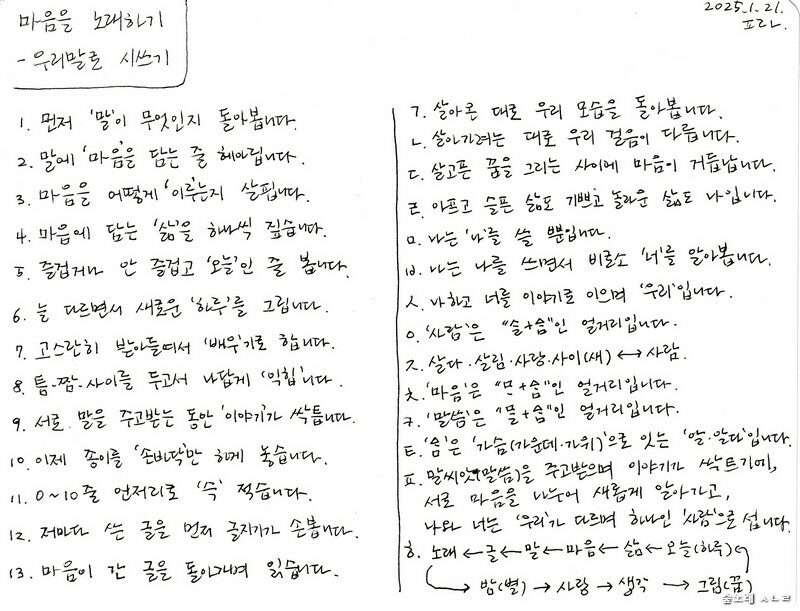 마음을 노래하기
- 우리말로 시쓰기
2025.1.21.
프라.
1. 먼저 '말'이 무엇인지 돌아봅니다.
2. 말에 '마음'을 담는 줄 헤아립니다.
3. 마음을 어떻게 '이루'는지 살핍니다.
4. 마음에 담는 '삶'을 하나씩 짚습니다.
5. 즐겁거나 안 즐겁고 '오늘'인 줄 봅니다.
6. 늘 다르면서 새로운 '하루'를 그립니다.
7. 고스란히 받아들여서 '배우'기로 합니다.
8. 틈-짬-사이를 두고서 나답게 '익힙'니다.
9. 서로 말을 주고받는 동안 '이야기'가 싹틉니다.
10. 이제 종이를 '손바닥'만 하게 놓습니다.
11. 0~10줄 언저리로 '슥' 적습니다.
12. 저마다 쓰는 글을 먼저 글지기가 손봅니다.
13. 마음이 간 글을 돌아가며 읽습니다.
ㄱ. 살아온 대로 우리 모습을 돌아봅니다.
ㄴ. 살아가려는 대로 우리 걸음이 다릅니다.
ㄷ. 살고픈 꿈을 그리는 사이에 마음이 거듭납니다.
ㄹ. 아프고 슬픈 삶도 기쁘고 놀라운 삶도 나입니다.
ㅁ. 나는 '나'를 쓸 뿐입니다.
ㅂ. 나는 나를 쓰면서 비로소 '너'를 알아봅니다.
ㅅ. 나하고 너를 이야기로 이으며 '우리'입니다.
ㅇ. '사람'은 "슬+슴"인 얼거리입니다.
ㅈ. 살다·살림·사랑·사이(새) ↔ 사람.
ㅊ. '마음'은 "믄+숨"인 얼거리입니다.
ㅋ. '말씀'은 "믈+숨"인 얼거리입니다.
ㅌ. '숨'은 '가슴(가운데·가위)'으로 잇는 '알·알다'입니다.
ㅍ. 말씨앗(말씀)을 주고받으며 이야기가 싹트기에,
서로 마음을 나누어 새롭게 알아가고,
나와 너는 '우리'가 다르며 하나인 '사람'으로 섭니다.
ㅎ. 노래 ← 글 ← 말 ← 마음 ← 삶 ← 오늘(하루)
→ 밤(별) → 사랑 → 생각 → 그림(꿈)
숲노래 ㅅㄴㄹ